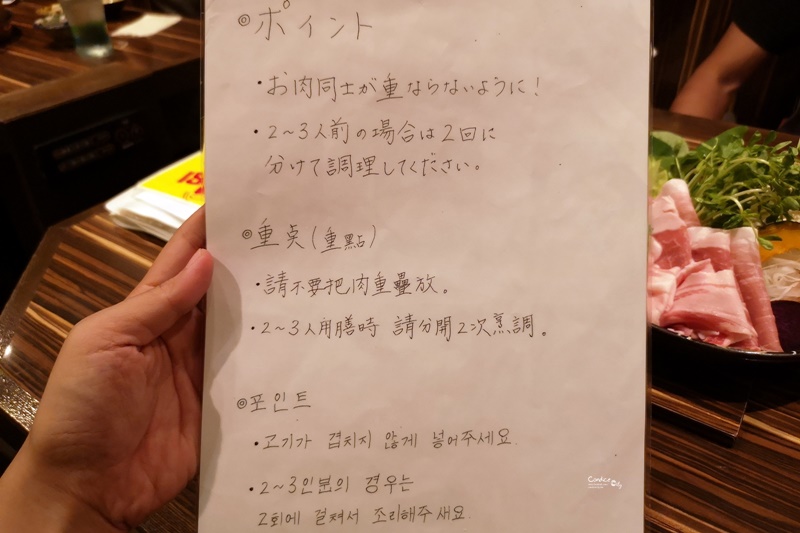 ◎ポイント
・お肉同士が重ならないように！
・2～3人前の場合は2回に
分けて調理してください。
◎重点(重點)
・請不要把肉重疊放。
・2～3人用膳時 請分開2次烹調。
◎포인트
・고기가 겹치지 않게 넣어주세요.
・2~3인분의 경우는
2회에 걸쳐서 조리해주세요.